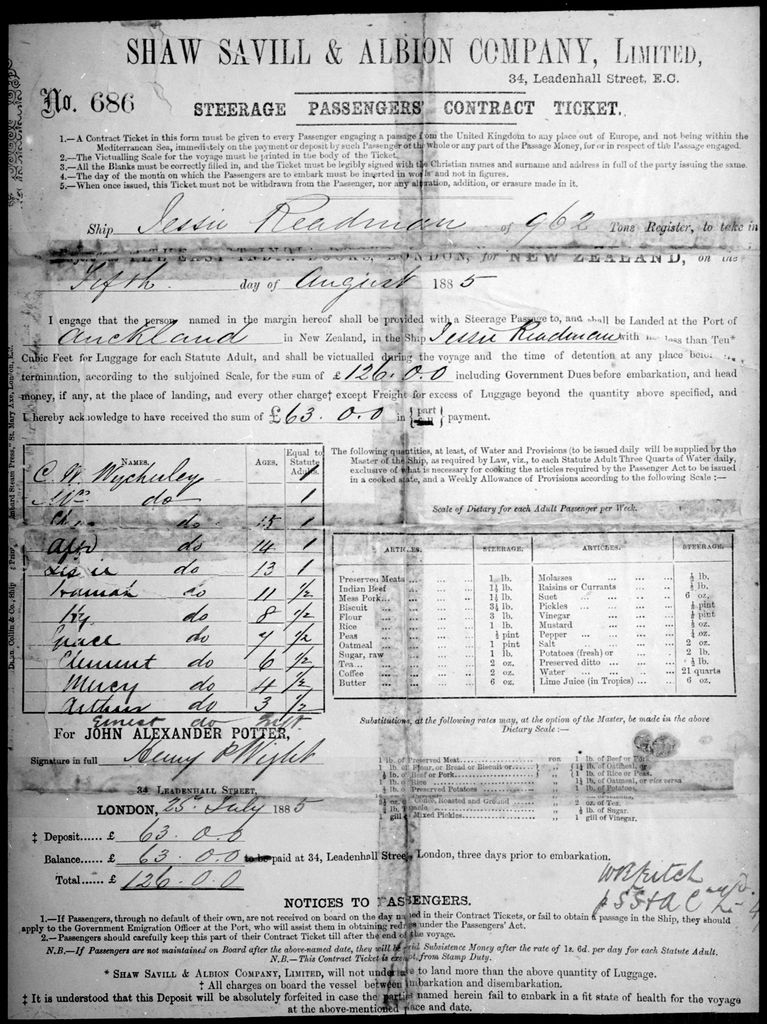 SHAW SAVILL & ALBION COMPANY, LIMITED,
34, Leadenhall Street, E.C.
No. 686
STEERAGE PASSENGERS' CONTRACT TICKET.
1.—A Contract Ticket in this form must be given to every Passenger engaging a passage from the United Kingdom to any place out of Europe, and not being within the
Mediterranean Sea, immediately on the payment or deposit by such Passenger of the whole or any part of the Passage Money, for or in respect of the Passage engaged.
2.—The Victualling Scale for the voyage must be printed in the body of the Ticket.
3.—All the Blanks must be correctly filled in, and the Ticket must be legibly signed with the Christian names and surname and address in full of the party issuing the same.
4.—The day of the month on which the Passengers are to embark must be inserted in words and not in figures.
5.—When once issued, this Ticket must not be withdrawn from the Passenger, nor any alteration, addition, or erasure made in it.
Ship Jessie Readman of 962 Tons Register, to take in
THE EAST INDIA DOCKS, LONDON, for NEW ZEALAND, on the
Fifth day of August 1885
I engage that the person named in the margin hereof shall be provided with a Steerage Passage to, and shall be Landed at the Port of
Auckland in New Zealand, in the Ship Jessie Readman with no less than Ten*
Cubic Feet for Luggage for each Statute Adult, and shall be victualled during the voyage and the time of detention at any place before
termination, according to the subjoined Scale, for the sum of £126.0.0 including Government Dues before embarkation, and head
money, if any, at the place of landing, and every other charge† except Freight for excess of Luggage beyond the quantity above specified, and
I hereby acknowledge to have received the sum of £63.0.0 in {part full} payment.
NAMES. AGES. Equal to Statute Adults.
C. W. Wycherley 1
Mrs do 1
do 15 1
Alfd do 14 1
Lissie do 13 1
do 11 1/2
Hy do 8 1/2
Grace do 7 1/2
Clement do 6 1/2
Mercy do 4 1/2
Arthur do 3 1/2
Ernest do Inft
The following quantities, at least, of Water and Provisions (to be issued daily will be supplied by the
Master of the Ship, as required by Law, viz., to each Statute Adult Three Quarts of Water daily,
exclusive of what is necessary for cooking the articles required by the Passenger Act to be issued
in a cooked state, and a Weekly Allowance of Provisions according to the following Scale:—
Scale of Dietary for each Adult Passenger per Week.
ARTICLES. STEERAGE. ARTICLES. STEERAGE.
Preserved Meats 1 lb. Molasses ½ lb.
Indian Beef 1¼ lb. Raisins or Currants ½ lb.
Mess Pork 1½ lb. Suet 6 oz.
Biscuit 3½ lb. Pickles ½ pint
Flour 3 lb. Vinegar ½ pint
Rice 1 lb. Mustard ½ oz.
Peas ½ pint Pepper ¼ oz.
Oatmeal 1 pint Salt 2 oz.
Sugar, raw 1 lb. Potatoes (fresh) or 2 lb.
Tea 2 oz. Preserved ditto ½ lb.
Coffee 2 oz. Water 21 quarts
Butter 6 oz. Lime Juice (in Tropics) 6 oz.
Substitutions, at the following rates may, at option of the Master, be made in the above
Dietary Scale:—
1 lb. of Preserved Meat for 1 lb. of Beef or Pork
1 lb. of Flour, or Bread or Biscuit or 1¼ lb. of Oatmeal, or
½ lb. of Beef or Pork 1 lb. of Rice or Peas.
1 lb. of Rice 1¼ lb. of Oatmeal, or vice versa
½ lb. of Preserved Potatoes 1 lb. of Potatoes.
Coffee, Roasted and Ground 2 oz. of Tea.
½ lb. ½ lb. of Sugar.
1 gill of Mixed Pickles 1 gill of Vinegar.
For JOHN ALEXANDER POTTER,
Signature in full Henry P Wight
34 LEADENHALL STREET,
LONDON, 25th July 1885
‡ Deposit...... £ 63.0.0
Balance...... £ 63.0.0 to be paid at 34, Leadenhall Street, London, three days prior to embarkation.
Total...... £ 126.0.0
NOTICES TO PASSENGERS.
1.—If Passengers, through no default of their own, are not received on board on the day named in their Contract Tickets, or fail to obtain a passage in the Ship, they should
apply to the Government Emigration Officer at the Port, who will assist them in obtaining redress under the Passengers' Act.
2.—Passengers should carefully keep this part of their Contract Ticket till after the end of the voyage.
N.B.—If Passengers are not maintained on Board after the above-named date, they will be paid Subsistence Money after the rate of 1s. 6d. per day for each Statute Adult.
N.B.—This Contract Ticket is exempt from Stamp Duty.
* SHAW SAVILL & ALBION COMPANY, LIMITED, will not undertake to land more than the above quantity of Luggage.
† All charges on board the vessel between embarkation and disembarkation.
‡ It is understood that this Deposit will be absolutely forfeited in case the parties named herein fail to embark in a fit state of health for the voyage
at the above-mentioned place and date.